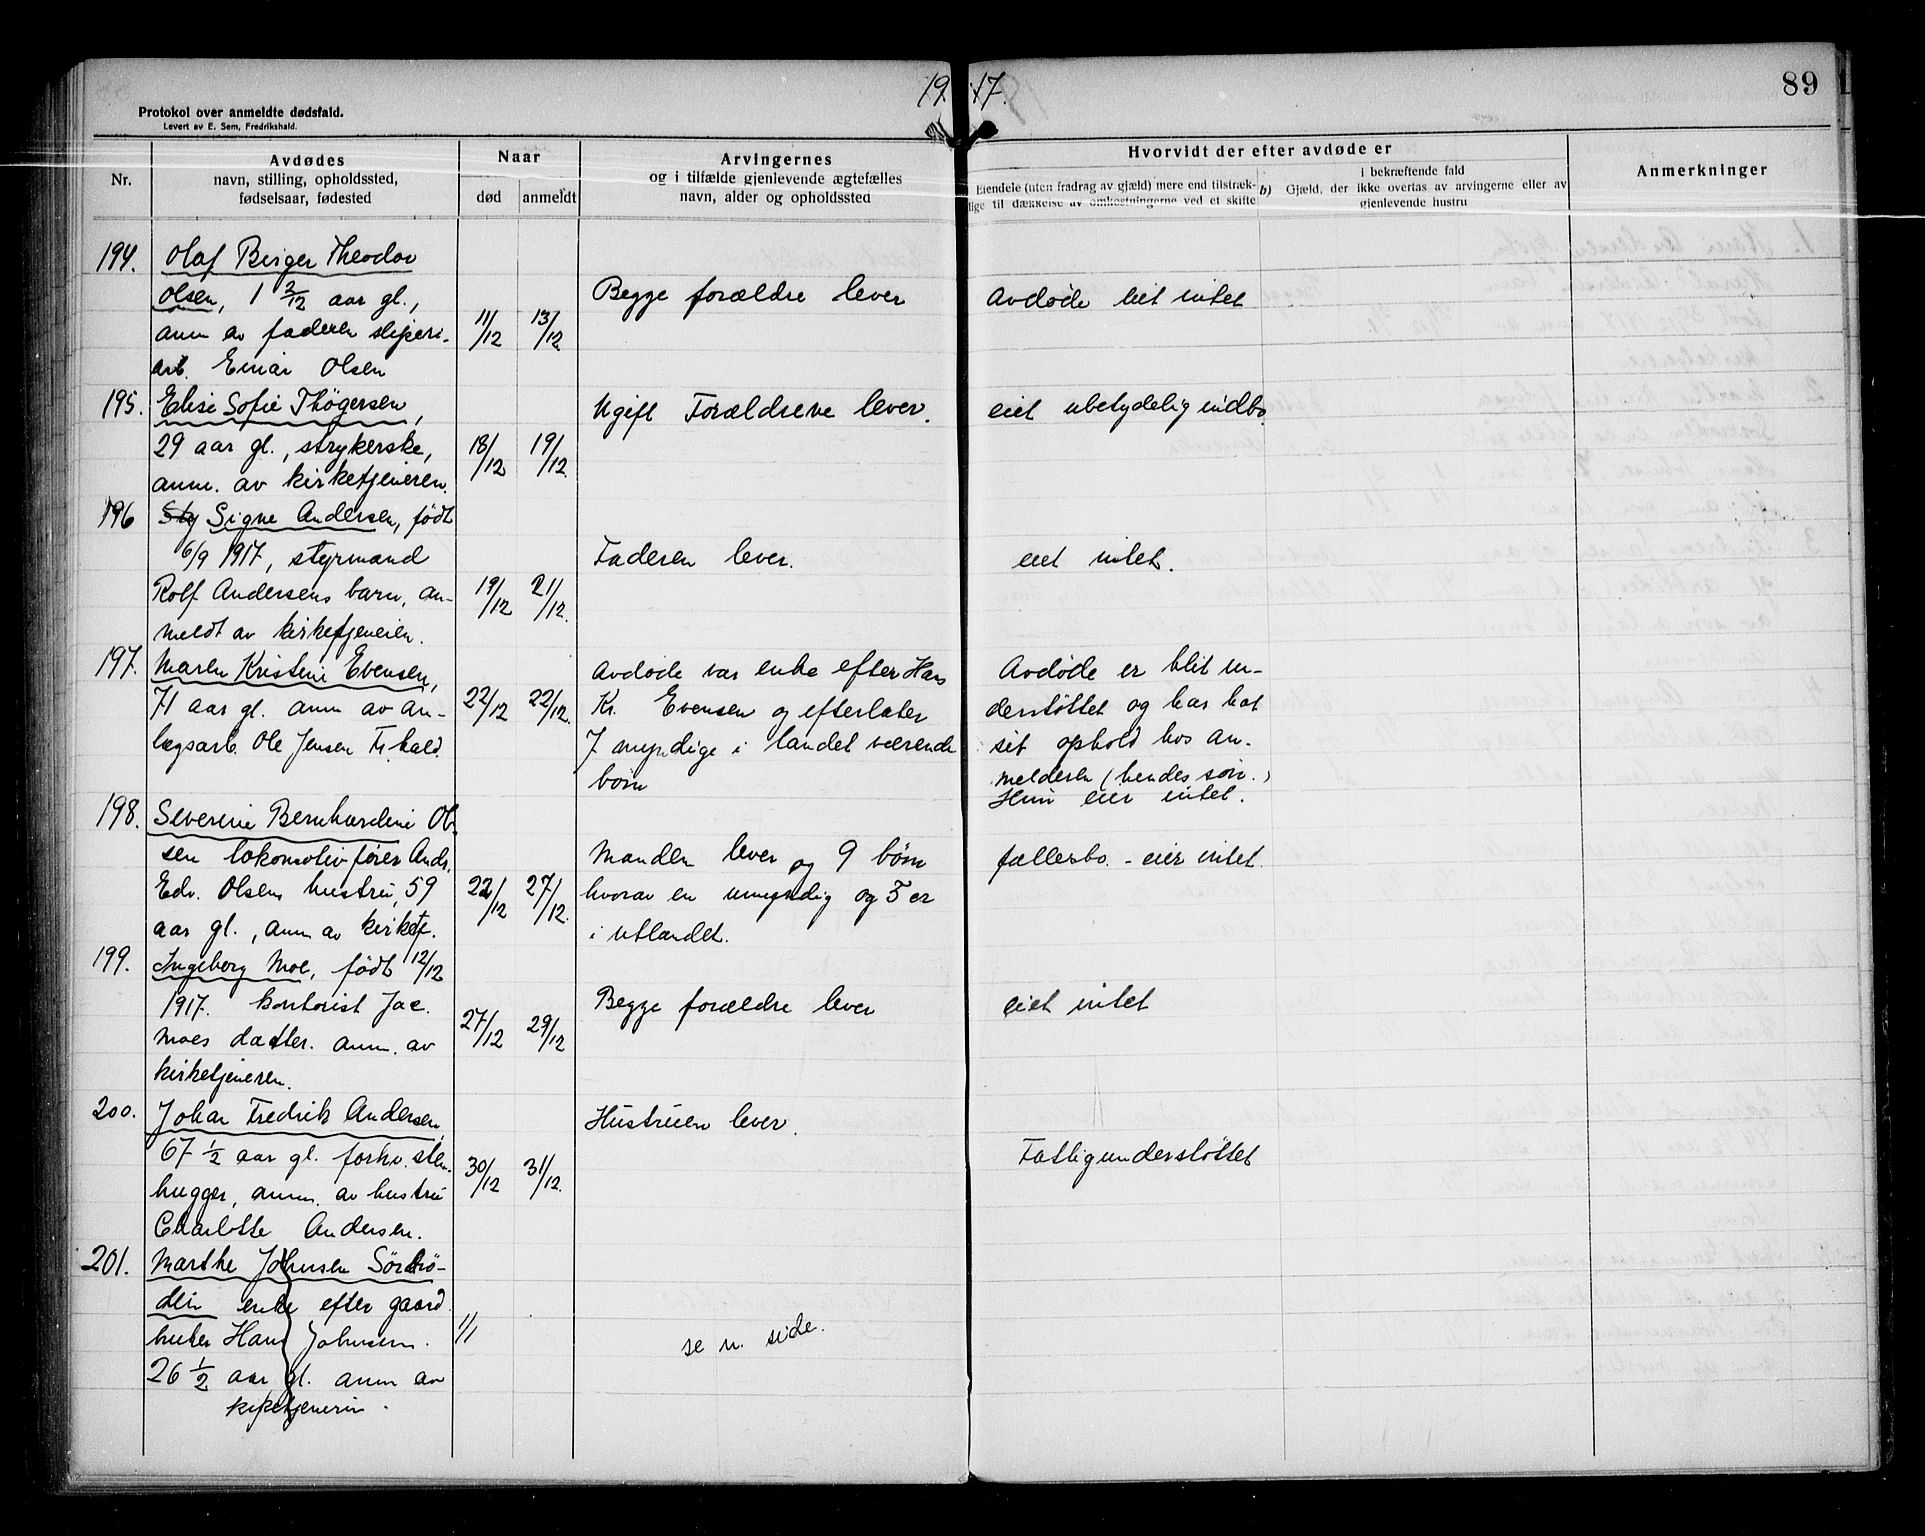 1917.
89
Protokol over anmeldte dødsfald.
Levert av E. Sem, Fredrikshald.
Nr.
Avdødes
navn, stilling, opholdssted,
fødselsaar, fødested
Naar
død
anmeldt
Arvingernes
og i tilfælde gjenlevende ægtefælles
navn, alder og opholdssted
Hvorvidt der efter avdøde er
Eiendele (uten fradrag av gjæld) mere end tilstræk-
lige til dækkelse av omkostningerne ved et skifte
i bekræftende fald
b) Gjæld, der ikke overtas av arvingerne eller av
gjenlevende hustru
Anmerkninger
194. Olaf Birger Theodor
Olsen, 1 3/12 aar gl.,
anm av faderen sliperi-
arb. Einar Olsen
11/12 13/12
Begge forældre lever
Avdøde eiet intet
195. Elise Sofie Thøgersen,
29 aar gl., strykerske,
anm. av kirketjeneren.
18/12 19/12.
Ugift Forældrene lever.
eiet ubetydelig indbo.
196 Sty Signe Andersen, født
6/9 1917, styrmand
Rolf Andersens barn, an-
meldt av kirketjeneren.
19/12 21/12.
Faderen lever.
eiet intet.
197. Maren Kristine Evensen,
71 aar gl. anm av an-
lægsarb. Ole Jensen Fr.hald.
22/12 22/12.
Avdøde var enke efter Hans
Kr. Evensen og efterlater
7 myndige i landet værende
børn
Avdøde er blit un-
derstøttet og har hat
sit ophold hos an-
melderen (hendes søn.)
Hun eier intet.
198. Severine Bernhardine Ol-
sen lokomotivfører Ands.
Edv. Olsens hustru, 59
aar gl., anm av kirketj.
22/12 27/12.
Manden lever og 9 børn
hvorav en umyndig og 5 er
i utlandet.
fællesbo. - eier intet.
199. Ingeborg Moe, født 12/12
1917. kontorist Jac.
Moes datter. anm. av
kirketjeneren.
27/12 29/12
Begge forældre lever
eiet intet
200. Johan Fredrik Andersen,
67 1/2 aar gl. forhv. sten-
hugger, anm. av hustru
Charlotte Andersen.
30/12 31/12.
Hustruen lever.
Fattigunderstøttet
201. Marthe Johnsen
enke efter gaard
bruker Hans Johnsen.
26 1/2 aar gl. anm av
kirketjeneren.
1/1
se n. side.